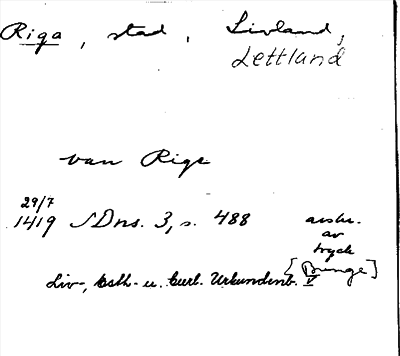 Riga, stad, Livland,
Lettland
van Rige
29/7
1419 SDns. 3, s. 488
avskr.
av
tryck
[Bunge]
Liv-, Esth- u. Curl. Urkundenb. V